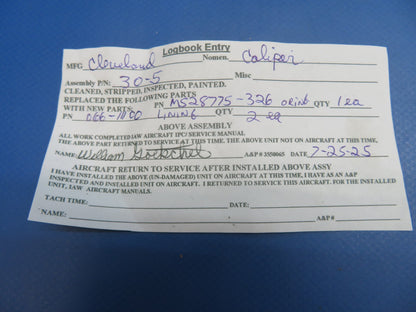 Logbook Entry
MFG Cleveland Nomen. Caliper
Assembly P/N: 30-5 Misc
CLEANED, STRIPPED, INSPECTED, PAINTED.
REPLACED THE FOLLOWING PARTS
WITH NEW PARTS: PN MS28775-326 oring QTY 1 ea
PN 066-11100 LINING QTY 2 ea
ABOVE ASSEMBLY
ALL WORK COMPLETED IAW AIRCRAFT IPC/ SERVICE MANUAL
THE ABOVE PART RETURNED TO SERVICE AT THIS TIME. THE ABOVE UNIT NOT ON AIRCRAFT AT THIS TIME,
NAME: William A&P # 3550065 DATE 7-25-25
AIRCRAFT RETURN TO SERVICE AFTER INSTALLED ABOVE ASSY
I HAVE INSTALLED THE ABOVE (UN-DAMAGED) UNIT ON AIRCRAFT AT THIS TIME, I HAVE AS AN A&P
INSPECTED AND INSTALLED UNIT ON AIRCRAFT. I RETURNED TO SERVICE THIS AIRCRAFT. FOR THE INSTALLED
UNIT, IAW AIRCRAFT MANUALS.
TACH TIME: DATE:
NAME: A&P#